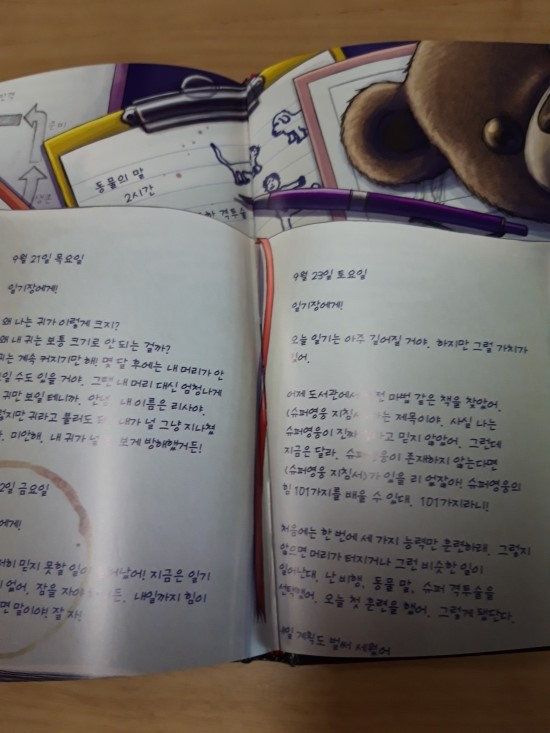 동물의 말
2시간
격투술
9월 21일 목요일
일기장에게!
왜 나는 귀가 이렇게 크지?
왜 내 귀는 보통 크기로 안 되는 걸까?
계속 커지기만 해! 몇 달 후에는 내 머리가 안
수도 있을 거야. 그땐 내 머리 대신 엄청나게
귀만 보일 테니까. 내 이름은 리사야.
귀라고 불러도 내가 널 그냥 지나쳤
미안해. 내 귀가 널 보게 방해했거든!
금요일
믿지 못할 일이 지금은 일기
없어. 잠을 자야 내일까지 힘이
말이야! 잘 자!
9월 23일 토요일
일기장에게!
오늘 일기는 아주 길어질 거야. 하지만 그럴 가치가
있어.
어제 도서관에서 마법 같은 책을 찾았어.
《슈퍼영웅 지침서》 제목이야. 사실 나는
슈퍼영웅이 믿지 않았어. 그런데
지금은 달라. 존재하지 않는다면
《슈퍼영웅 지침서》가 있을 리 없잖아! 슈퍼영웅의
힘 101가지를 배울 수 있대. 101가지라니!
처음에는 한 번에 세 가지 능력만 훈련하래. 그렇지
않으면 머리가 터지거나 그런 비슷한 일이
일어난대. 난 비행, 동물 말, 슈퍼 격투술을
선택했어. 오늘 첫 훈련을 했어. 그렇게 됐단다.
계획도 벌써 세웠어